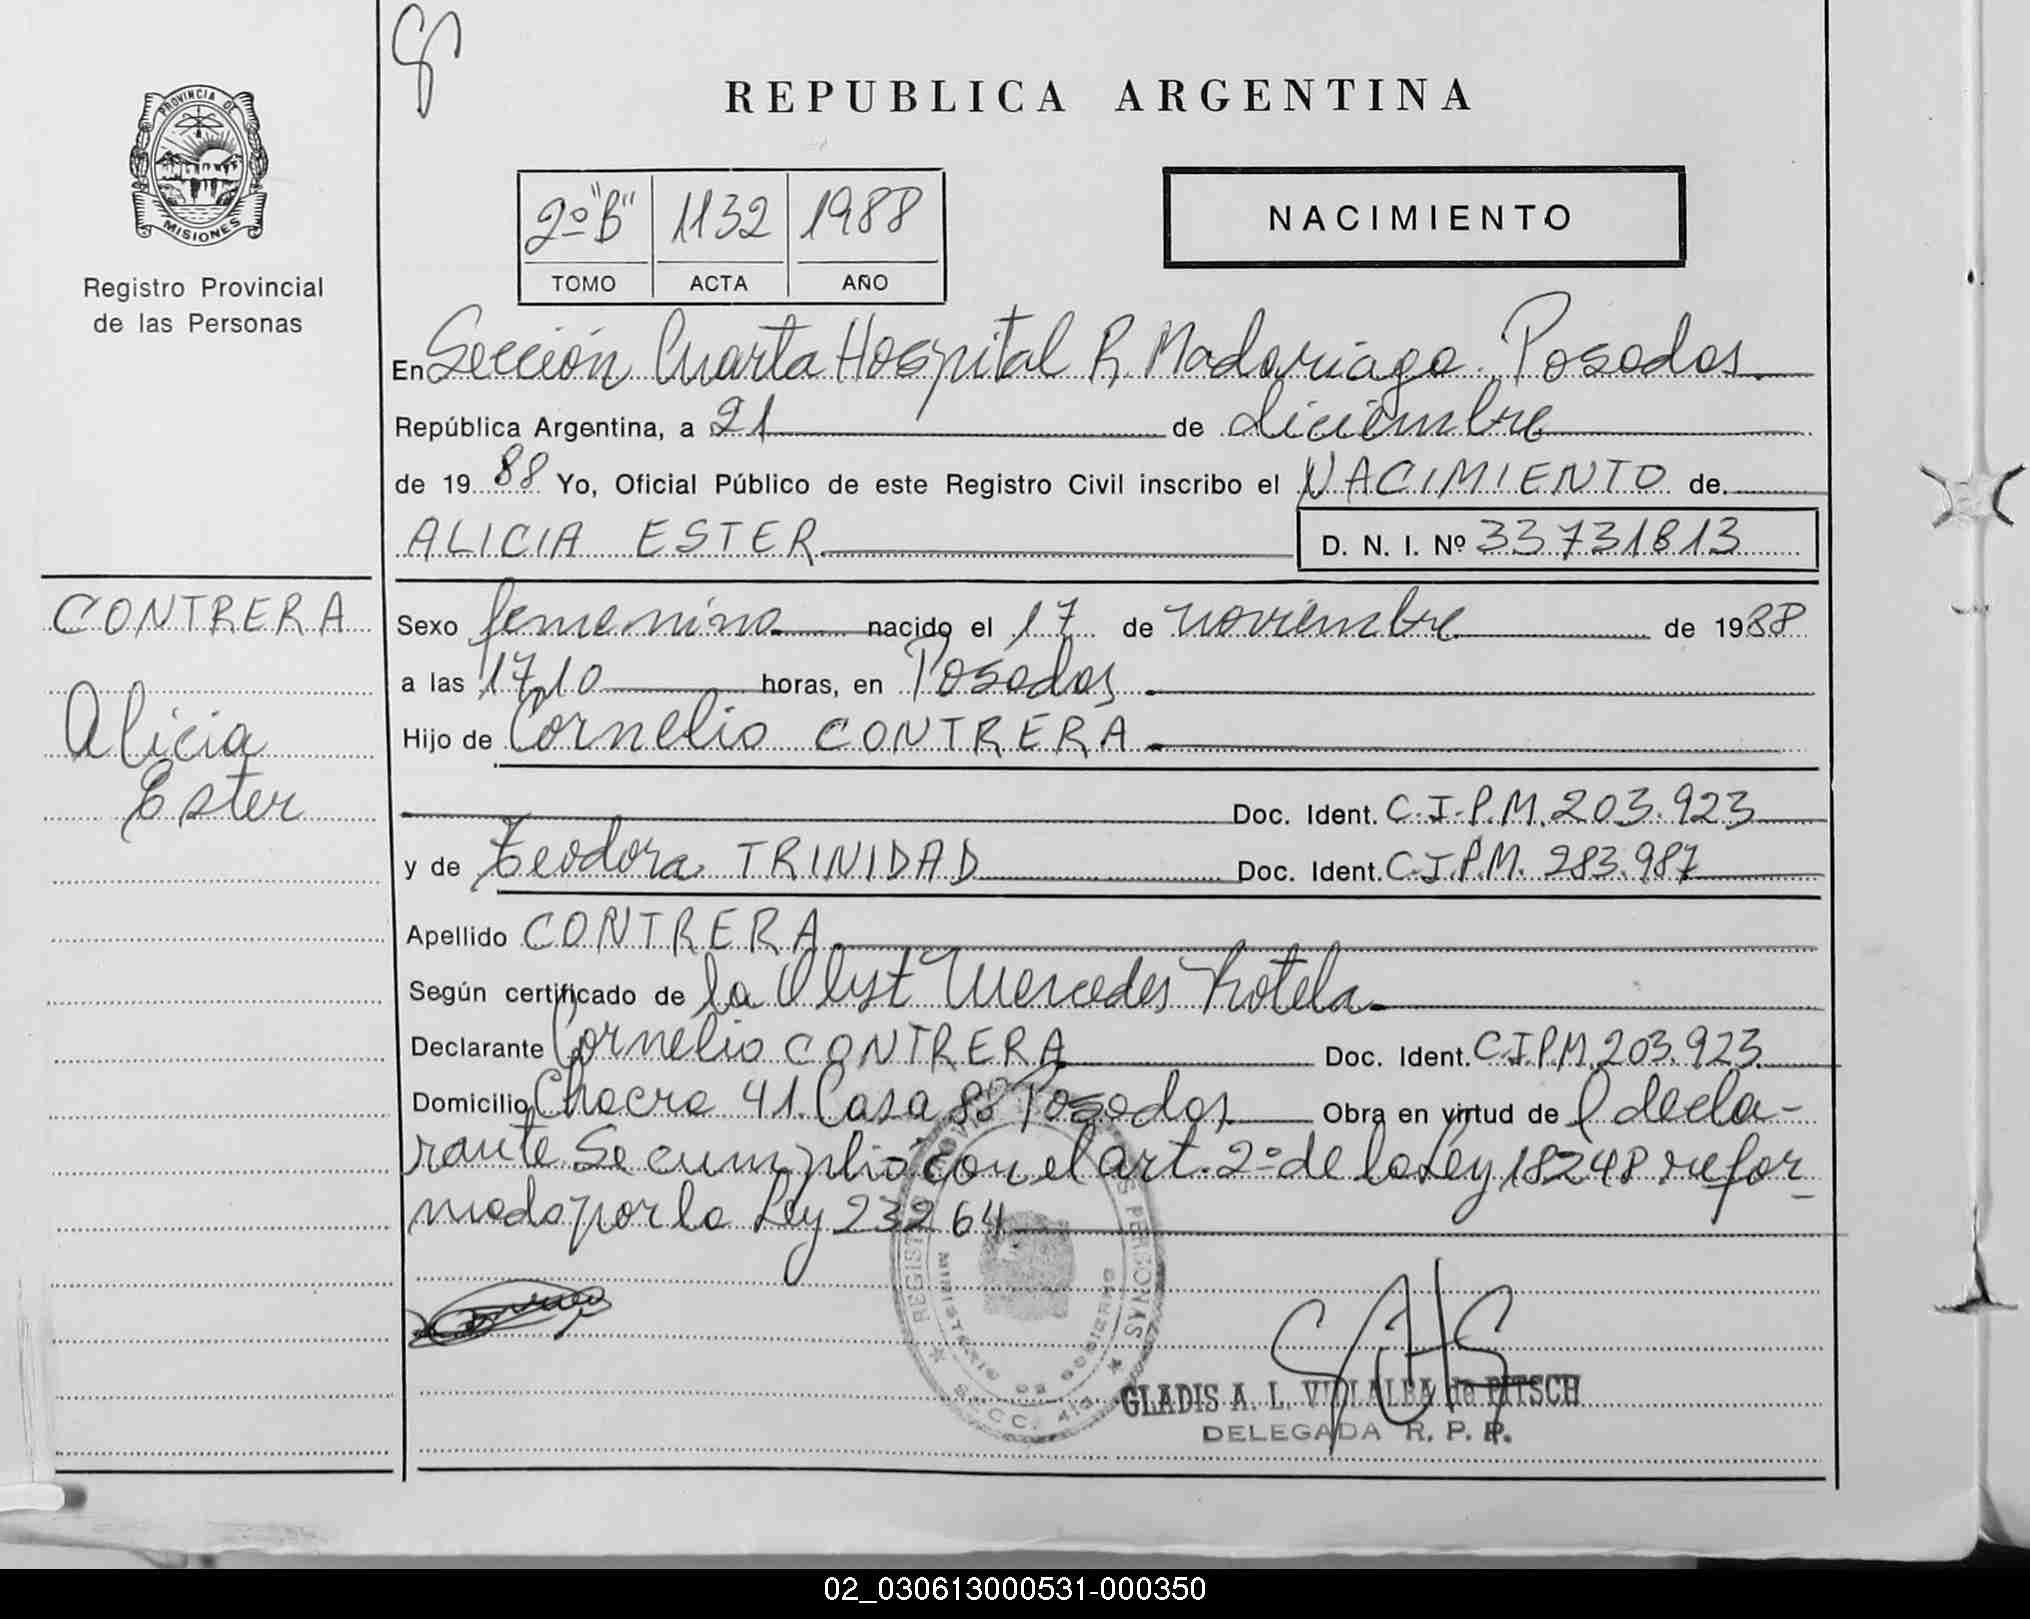 REPUBLICA ARGENTINA
PROVINCIA DE
MISIONES
Registro Provincial
de las Personas
2º "B" 1132 1988
TOMO ACTA AÑO
NACIMIENTO
En Sección Cuarta Hospital R. Madariaga. Posadas
República Argentina, a 21 de diciembre
de 1988 Yo, Oficial Público de este Registro Civil inscribo el NACIMIENTO de
ALICIA ESTER D. N. I. Nº 33731813
CONTRERA
Alicia
Ester
Sexo femenino nacido el 17 de noviembre de 1988
a las 17,10 horas, en Posadas
Hijo de Cornelio CONTRERA
Doc. Ident. C.I.P.M. 203.923
y de Teodora TRINIDAD Doc. Ident. C.I.P.M. 283.987
Apellido CONTRERA
Según certificado de la Obst Mercedes Rotela
Declarante Cornelio CONTRERA Doc. Ident. C.I.P.M. 203.923
Domicilio Chacra 41. Casa 88 Posadas Obra en virtud de l decla-
rante Se cumplió con el art. 2º de la Ley 18248 refor-
mada por la Ley 23264
GLADIS A. L. VILLALBA de PITSCH
DELEGADA R. P. P.
02_030613000531-000350